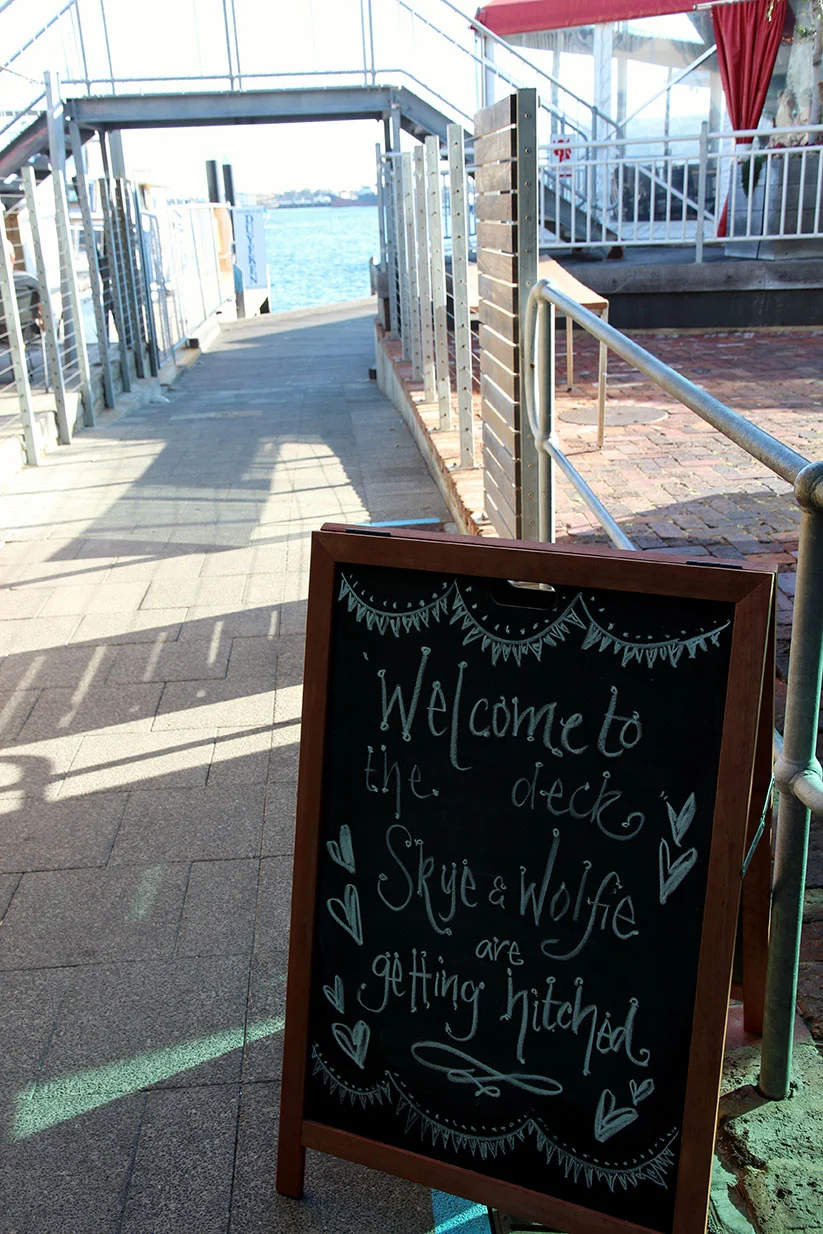 Welcome to
the deck
Skye & Wolfie
are
getting hitched